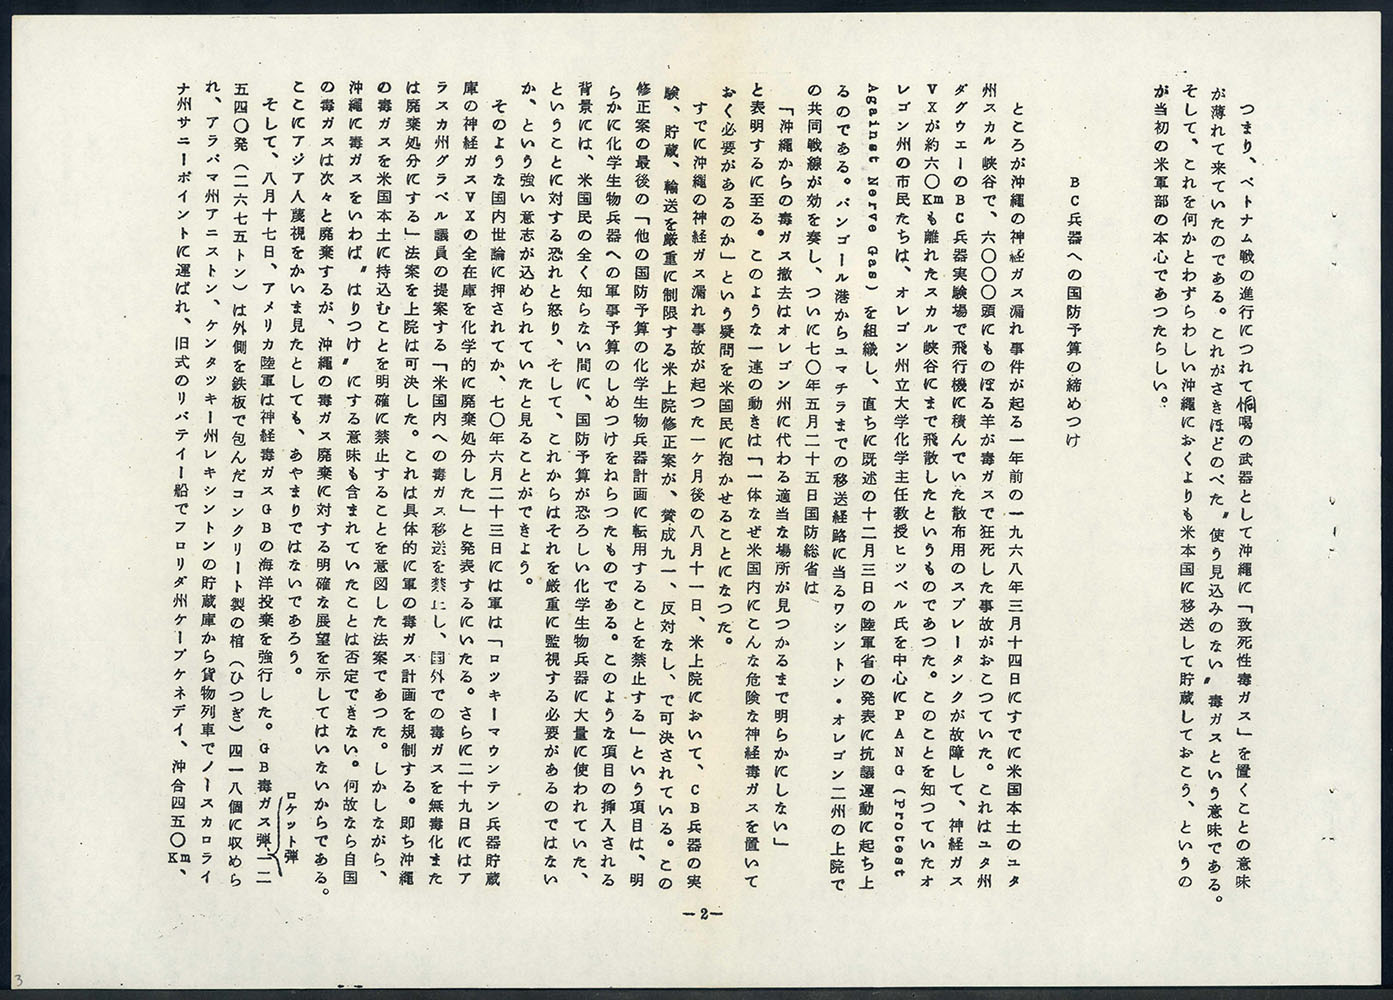 つまり、ベトナム戦の進行につれて恫喝の武器として沖縄に「致死性毒ガス」を置くことの意味
が薄れて来ていたのである。これがさきほどのべた〝使う見込みのない〟毒ガスという意味である。
そして、これを何かとわずらわしい沖縄におくよりも米本国に移送して貯蔵しておこう、というの
が当初の米軍部の本心であつたらしい。
BC兵器への国防予算の締めつけ
ところが沖縄の神経ガス漏れ事件が起る一年前の一九六八年三月十四日にすでに米国本土のユタ
州スカル峡谷で、六〇〇〇頭にものぼる羊が毒ガスで狂死した事故がおこつていた。これはユタ州
ダグウエーのBC兵器実験場で飛行機に積んでいた散布用のスプレータンクが故障して、神経ガス
VXが約六〇Kmも離れたスカル峡谷にまで飛散したというものであつた。このことを知つていたオ
レゴン州の市民たちは、オレゴン州立大学化学主任教授ヒッペル氏を中心にPANG(Protest
Against Nerve Gas)を組織し、直ちに既述の十二月三日の陸軍省の発表に抗議運動に起ち上
るのである。バンゴール港からユマチラまでの移送経路に当るワシントン・オレゴン二州の上院で
の共同戦線が効を奏し、ついに七〇年五月二十五日国防総省は
「沖縄からの毒ガス撤去はオレゴン州に代わる適当な場所が見つかるまで明らかにしない」
と表明するに至る。このような一連の動きは「一体なぜ米国内にこんな危険な神経毒ガスを置いて
おく必要があるのか」という疑問を米国民に抱かせることになつた。
すでに沖縄の神経ガス漏れ事故が起つた一ケ月後の八月十一日、米上院において、CB兵器の実
験、貯蔵、輸送を厳重に制限する米上院修正案が、賛成九一、反対なし、で可決されている。この
修正案の最後の「他の国防予算の化学生物兵器計画に転用することを禁止する」という項目は、明
らかに化学生物兵器への軍事予算のしめつけをねらつたものである。このような項目の挿入される
背景には、米国民の全く知らない間に、国防予算が恐ろしい化学生物兵器に大量に使われていた、
ということに対する恐れと怒り、そして、これからはそれを厳重に監視する必要があるのではない
か、という強い意志が込められていたと見ることができよう。
そのような国内世論に押されてか、七〇年六月二十三日には軍は「ロツキーマウンテン兵器貯蔵
庫の神経ガスVXの全在庫を化学的に廃棄処分した」と発表するにいたる。さらに二十九日にはア
ラスカ州グラベル議員の提案する「米国内への毒ガス移送を禁止し、国外での毒ガスを無毒化また
は廃棄処分にする」法案を上院は可決した。これは具体的に軍の毒ガス計画を規制する。即ち沖縄
の毒ガスを米国本土に持込むことを明確に禁止することを意図した法案であつた。しかしながら、
沖縄に毒ガスをいわば〝はりつけ〟にする意味も含まれていたことは否定できない。何故なら自国
の毒ガスは次々と廃棄するが、沖縄の毒ガス廃棄に対する明確な展望を示してはいないからである。
ここにアジア人蔑視をかいま見たとしても、あやまりではないであろう。
ロケット弾
そして、八月十七日、アメリカ陸軍は神経毒ガスGBの海洋投棄を強行した。GB毒ガス弾一二
五四〇発(二六七五トン)は外側を鉄板で包んだコンクリート製の棺(ひつぎ)四一八個に収めら
れ、アラバマ州アニストン、ケンタツキー州レキシントンの貯蔵庫から貨物列車でノースカロライ
ナ州サニーポイントに運ばれ、旧式のリバテイー船でフロリダ州ケープケネデイ、沖合四五〇Km、
—2—
3